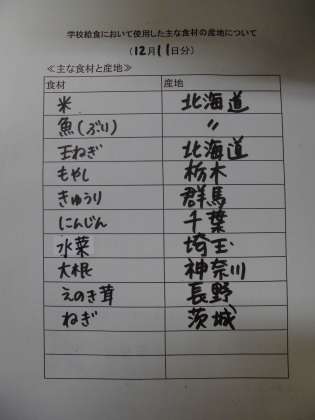 学校給食において使用した主な食材の産地について
(12月11日分)
≪主な食材と産地≫
食材 産地
米 北海道
魚(ぶり) 〃
玉ねぎ 北海道
もやし 栃木
きゅうり 群馬
にんじん 千葉
水菜 埼玉
大根 神奈川
えのき茸 長野
ねぎ 茨城